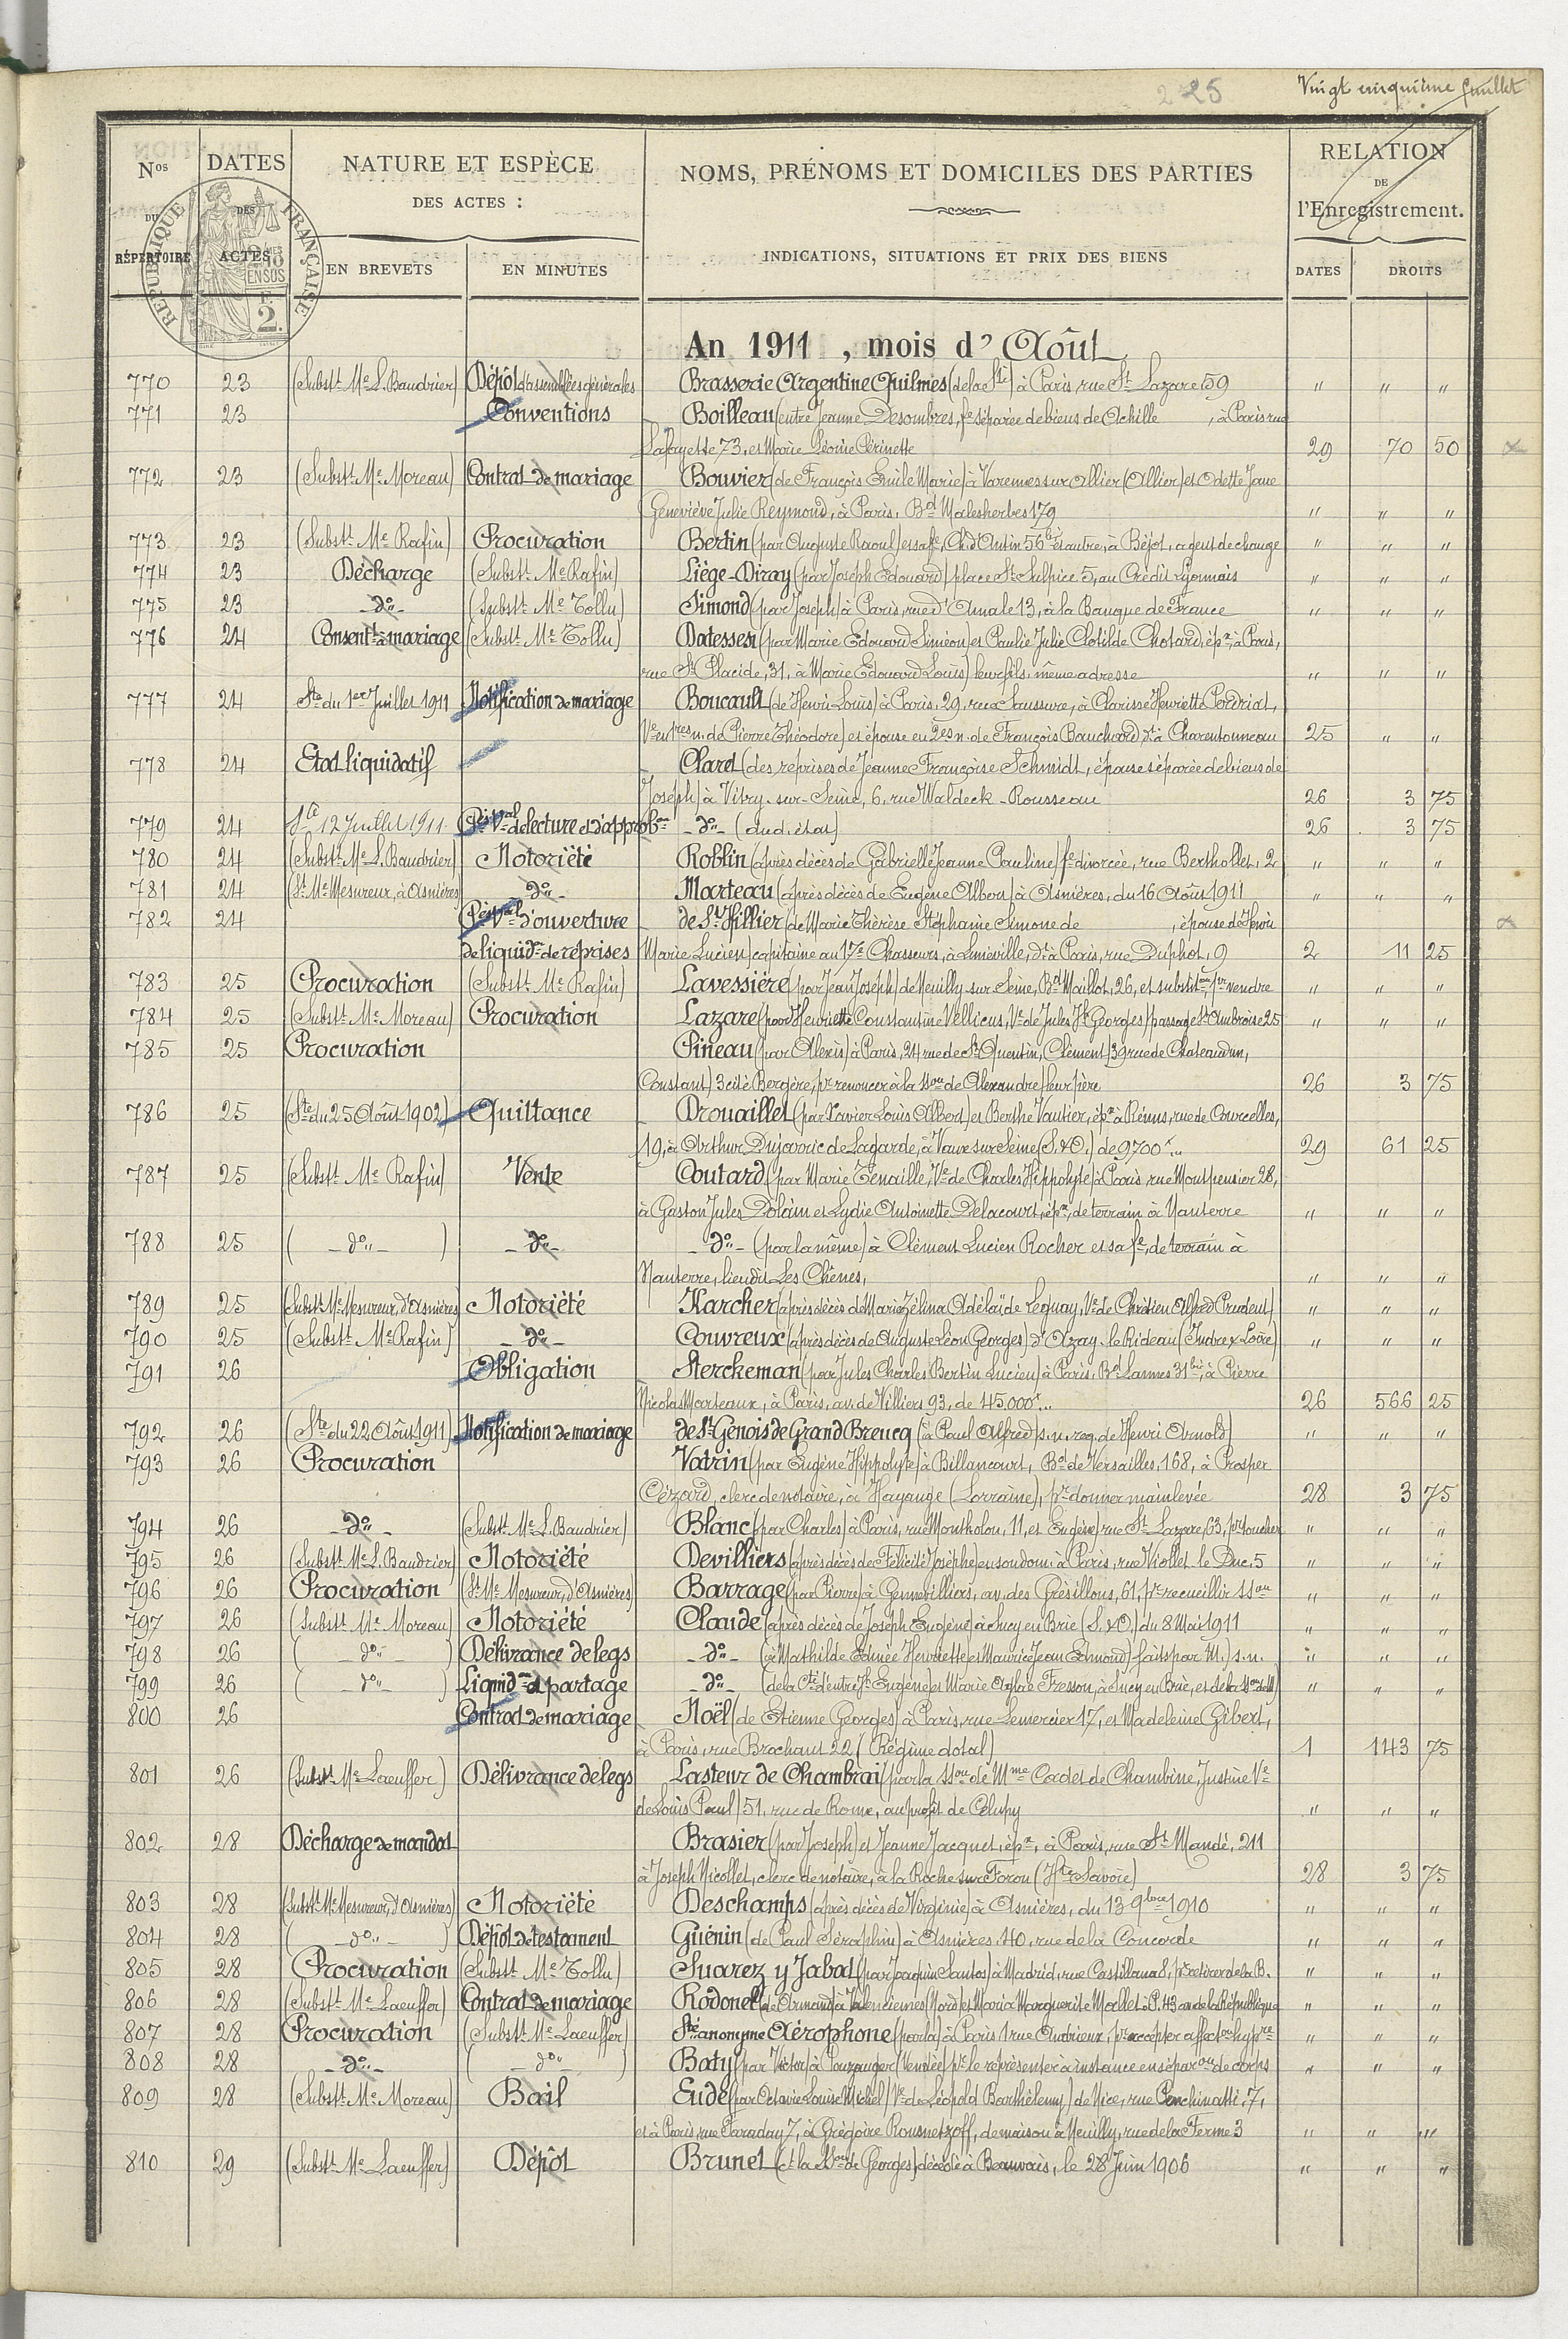 225 Vingt cinquième feuillet
Nos DU RÉPERTOIRE
DATES DES ACTES
NATURE ET ESPÈCE
DES ACTES :
EN BREVETS
EN MINUTES
NOMS, PRÉNOMS ET DOMICILES DES PARTIES
INDICATIONS, SITUATIONS ET PRIX DES BIENS
RELATION
DE
l'Enregistrement.
DATES
DROITS
RÉPUBLIQUE FRANÇAISE
2
An 1911, mois d'Août
770 23 (Substt Me L. Baudrier) Dépôt d'assemblées générales Brasserie Argentine Quilmes (de la Sté) à Paris, rue St Lazare 59 " " "
771 23 Conventions Boilleau (entre Jeanne Desombres, fe séparée de biens de Achille , à Paris rue
Lafayette 73, et Marie Léonie Périnette 29 70 50
772 23 (Substt Me Moreau) Contrat de mariage Bouvier (de François Emile Marie) à Varennes sur Allier (Allier) et Odette Jane
Geneviève Julie Reymond, à Paris, Bd Malesherbes 179 " " "
773 23 (Substt Me Rafin) Procuration Bertin (par Auguste Raoul) et sa fe, Ch. d'Antin 56 b et autre, à Béjot, agent de change " " "
774 23 Décharge (Substt Me Rafin) Liège-Diray (par Joseph Edouard) place St Sulpice 5, au Crédit Lyonnais " " "
775 23 do (Substt Me Tollu) Simond (par Joseph) à Paris, rue d'Amale 13, à la Banque de France " " "
776 24 Consentt à mariage (Substt Me Tollu) Datessen (par Marie Edouard Siméon) et Paulie Julie Clotilde Chotard, épx, à Paris,
rue St Placide, 31, à Marie Edouard Louis) leur fils, même adresse " " "
777 24 Ste du 1er Juillet 1911 Notification de mariage Boucault (de Henri Louis) à Paris, 29, rue Saussure, à Clarisse Henriette Perdriat,
Ve en 1res n. de Pierre Théodore) et épouse en 2es n. de François Bouchard dt à Charentonneau 25 " "
778 24 Etat liquidatif Claret (des reprises de Jeanne Françoise Schmidt, épouse séparée de biens de
Joseph) à Vitry-sur-Seine, 6, rue Waldeck-Rousseau 26 3 75
779 24 Ste 12 Juillet 1911 Pès Val de lecture et d'approbon do (dud. état) 26 3 75
780 24 (Substt Me L. Baudrier) Notoriété Roblin (après décès de Gabrielle Jeanne Pauline) fe divorcée, rue Berthollet, 2 " " "
781 24 (St Me Mesureur, à Asnières) do Marteau (après décès de Eugène Albert) à Asnières, du 16 Août 1911 " " "
782 24 Pès Val d'ouverture de St Hillier (de Marie Thérèse Stéphanie Simone de , épouse de Henri
de liquidon de reprises Marie Lucien) capitaine au 17e Chasseurs, à Lunéville, dt à Paris, rue Duphot, 9 2 11 25
783 25 Procuration (Substt Me Rafin) Lavessière (par Jean Joseph) de Neuilly sur Seine, Bd Maillot, 26, et substiton pr vendre " " "
784 25 (Substt Me Moreau) Procuration Lazare (par Henriette Constantine Vellicus, Ve de Jules Ht Georges) passage St Ambroise 25 " " "
785 25 Procuration Pineau (par Alexis) à Paris, 24 rue de St Quentin, Clément) 39 rue de Chateaudun,
Constant) 3 cité Bergère, pr renoncer à la sson de Alexandre) leur père 26 3 75
786 25 (Ste du 25 Août 1902) Quittance Drouaillet (par Xavier Louis Albert) et Berthe Vautier, épx à Reims, rue de Courcelles,
19, à Arthur Dujarric de Lagarde, à Vaux sur Seine (S.&O.) de 9700 f... 29 61 25
787 25 (Substt Me Rafin) Vente Coutard (par Marie Tenaille, Ve de Charles Hippolyte) à Paris, rue Montpensier 28,
à Gaston Jules Dolain et Lydie Antoinette Delacourt, épx, de terrain à Nanterre " " "
788 25 ( do ) do do (par la même) à Clément Lucien Rocher et sa fe, de terrain à
Nanterre, lieudit Les Chênes, " " "
789 25 (Substt Me Mesureur, d'Asnières) Notoriété Karcher (après décès de Marie Zélina Adélaïde Leguay, Ve de Chrétien Alfred Prudent) " " "
790 25 (Substt Me Rafin) do Couvreux (après décès de Auguste Léon Georges) d'Azay-le-Rideau (Indre & Loire) " " "
791 26 Obligation Sterckeman (par Jules Charles Bertin Lucien) à Paris, Bd Lannes 31 bis, à Pierre
Nicolas Marteaux, à Paris, av. de Villiers 93, de 45.000 f... 26 566 25
792 26 (Ste du 22 Août 1911) Notification de mariage de St Genois de Grand Breucq (à Paul Alfred) s.n. req. de Henri Arnold) " " "
793 26 Procuration Vatrin (par Eugène Hippolyte) à Billancourt, Bd de Versailles, 168, à Prosper
Cézard, clerc de notaire, à Hayange (Lorraine), pr donner mainlevée 28 3 75
794 26 do (Substt Me L. Baudrier) Blanc (par Charles) à Paris, rue Montholon, 11, et Eugène) rue St Lazare, 63, pr toucher " " "
795 26 (Substt Me L. Baudrier) Notoriété Devilliers (après décès de Félicité Josèphe) en son dom. à Paris, rue Viollet le Duc, 5 " " "
796 26 Procuration (St Me Mesureur, d'Asnières) Barrage (par Pierre) à Gennevilliers, av. des Grésillons, 61, pr recueillir sson " " "
797 26 (Substt Me Moreau) Notoriété Claude (après décès de Joseph Eugène) à Sucy en Brie (S.&O.) du 8 Mai 1911 " " "
798 26 ( do ) Délivrance de legs do (à Mathilde Edmée Henriette et Maurice Jean Edmond) faits par M.) s.n. " " "
799 26 ( do ) Liquidon et partage do (de la Cté d'entre Jh Eugène) et Marie Aglaé Fresson, à Sucy en Brie, et de la sson du M) " " "
800 26 Contrat de mariage Noël (de Etienne Georges) à Paris, rue Lemercier 17, et Madeleine Gibert,
à Paris, rue Brochant 22 (Régime dotal) 1 143 75
801 26 (Substt Me Laeuffer) Délivrance de legs Lasteur de Chambrai (par la sson de Mme Cadet de Chambine, Justine Ve
de Louis Paul) 51, rue de Rome, au profit de Célupy " " "
802 28 Décharge de mandat Brasier (par Joseph) et Jeanne Jacquet, épx, à Paris, rue St Mandé, 211
à Joseph Nicollet, clerc de notaire, à la Roche sur Foron (Hte Savoie) 28 3 75
803 28 (Substt Me Mesureur, d'Asnières) Notoriété Deschamps (après décès de Virginie) à Asnières, du 13 9bre 1910 " " "
804 28 ( do ) Dépôt de testament Guénin (de Paul Séraphin) à Asnières, 40, rue de la Concorde " " "
805 28 Procuration (Substt Me Tollu) Suarez y Jabat (par Joaquin Santos) à Madrid, rue Castillana 8, pr retirer de la B. " " "
806 28 (Substt Me Laeuffer) Contrat de mariage Rodonet (de Armand) à Valenciennes (Nord) et Maria Marguerite Mallet à P. 43 av. de la République " " "
807 28 Procuration (Substt Me Laeuffer) Sté anonyme Aérophone (par la) à Paris 1 rue Andrieux, pr accepter affecton hypre " " "
808 28 do ( do ) Baty (par Victor) à Pouzauges (Vendée) pr le représenter à instance en séparon de corps " " "
809 28 (Substt Me Moreau) Bail Eude (par Octavie Louise Michel) Ve de Léopold Barthélemy) de Nice, rue Penchinatti, 7,
et à Paris, rue Faraday 7, à Grégoire Rousnetzoff, de maison à Neuilly, rue de la Ferme 3 " " "
810 29 (Substt Me Laeuffer) Dépôt Brunet (et la Sson de Georges) décédé à Beauvais, le 28 Juin 1906 " " "